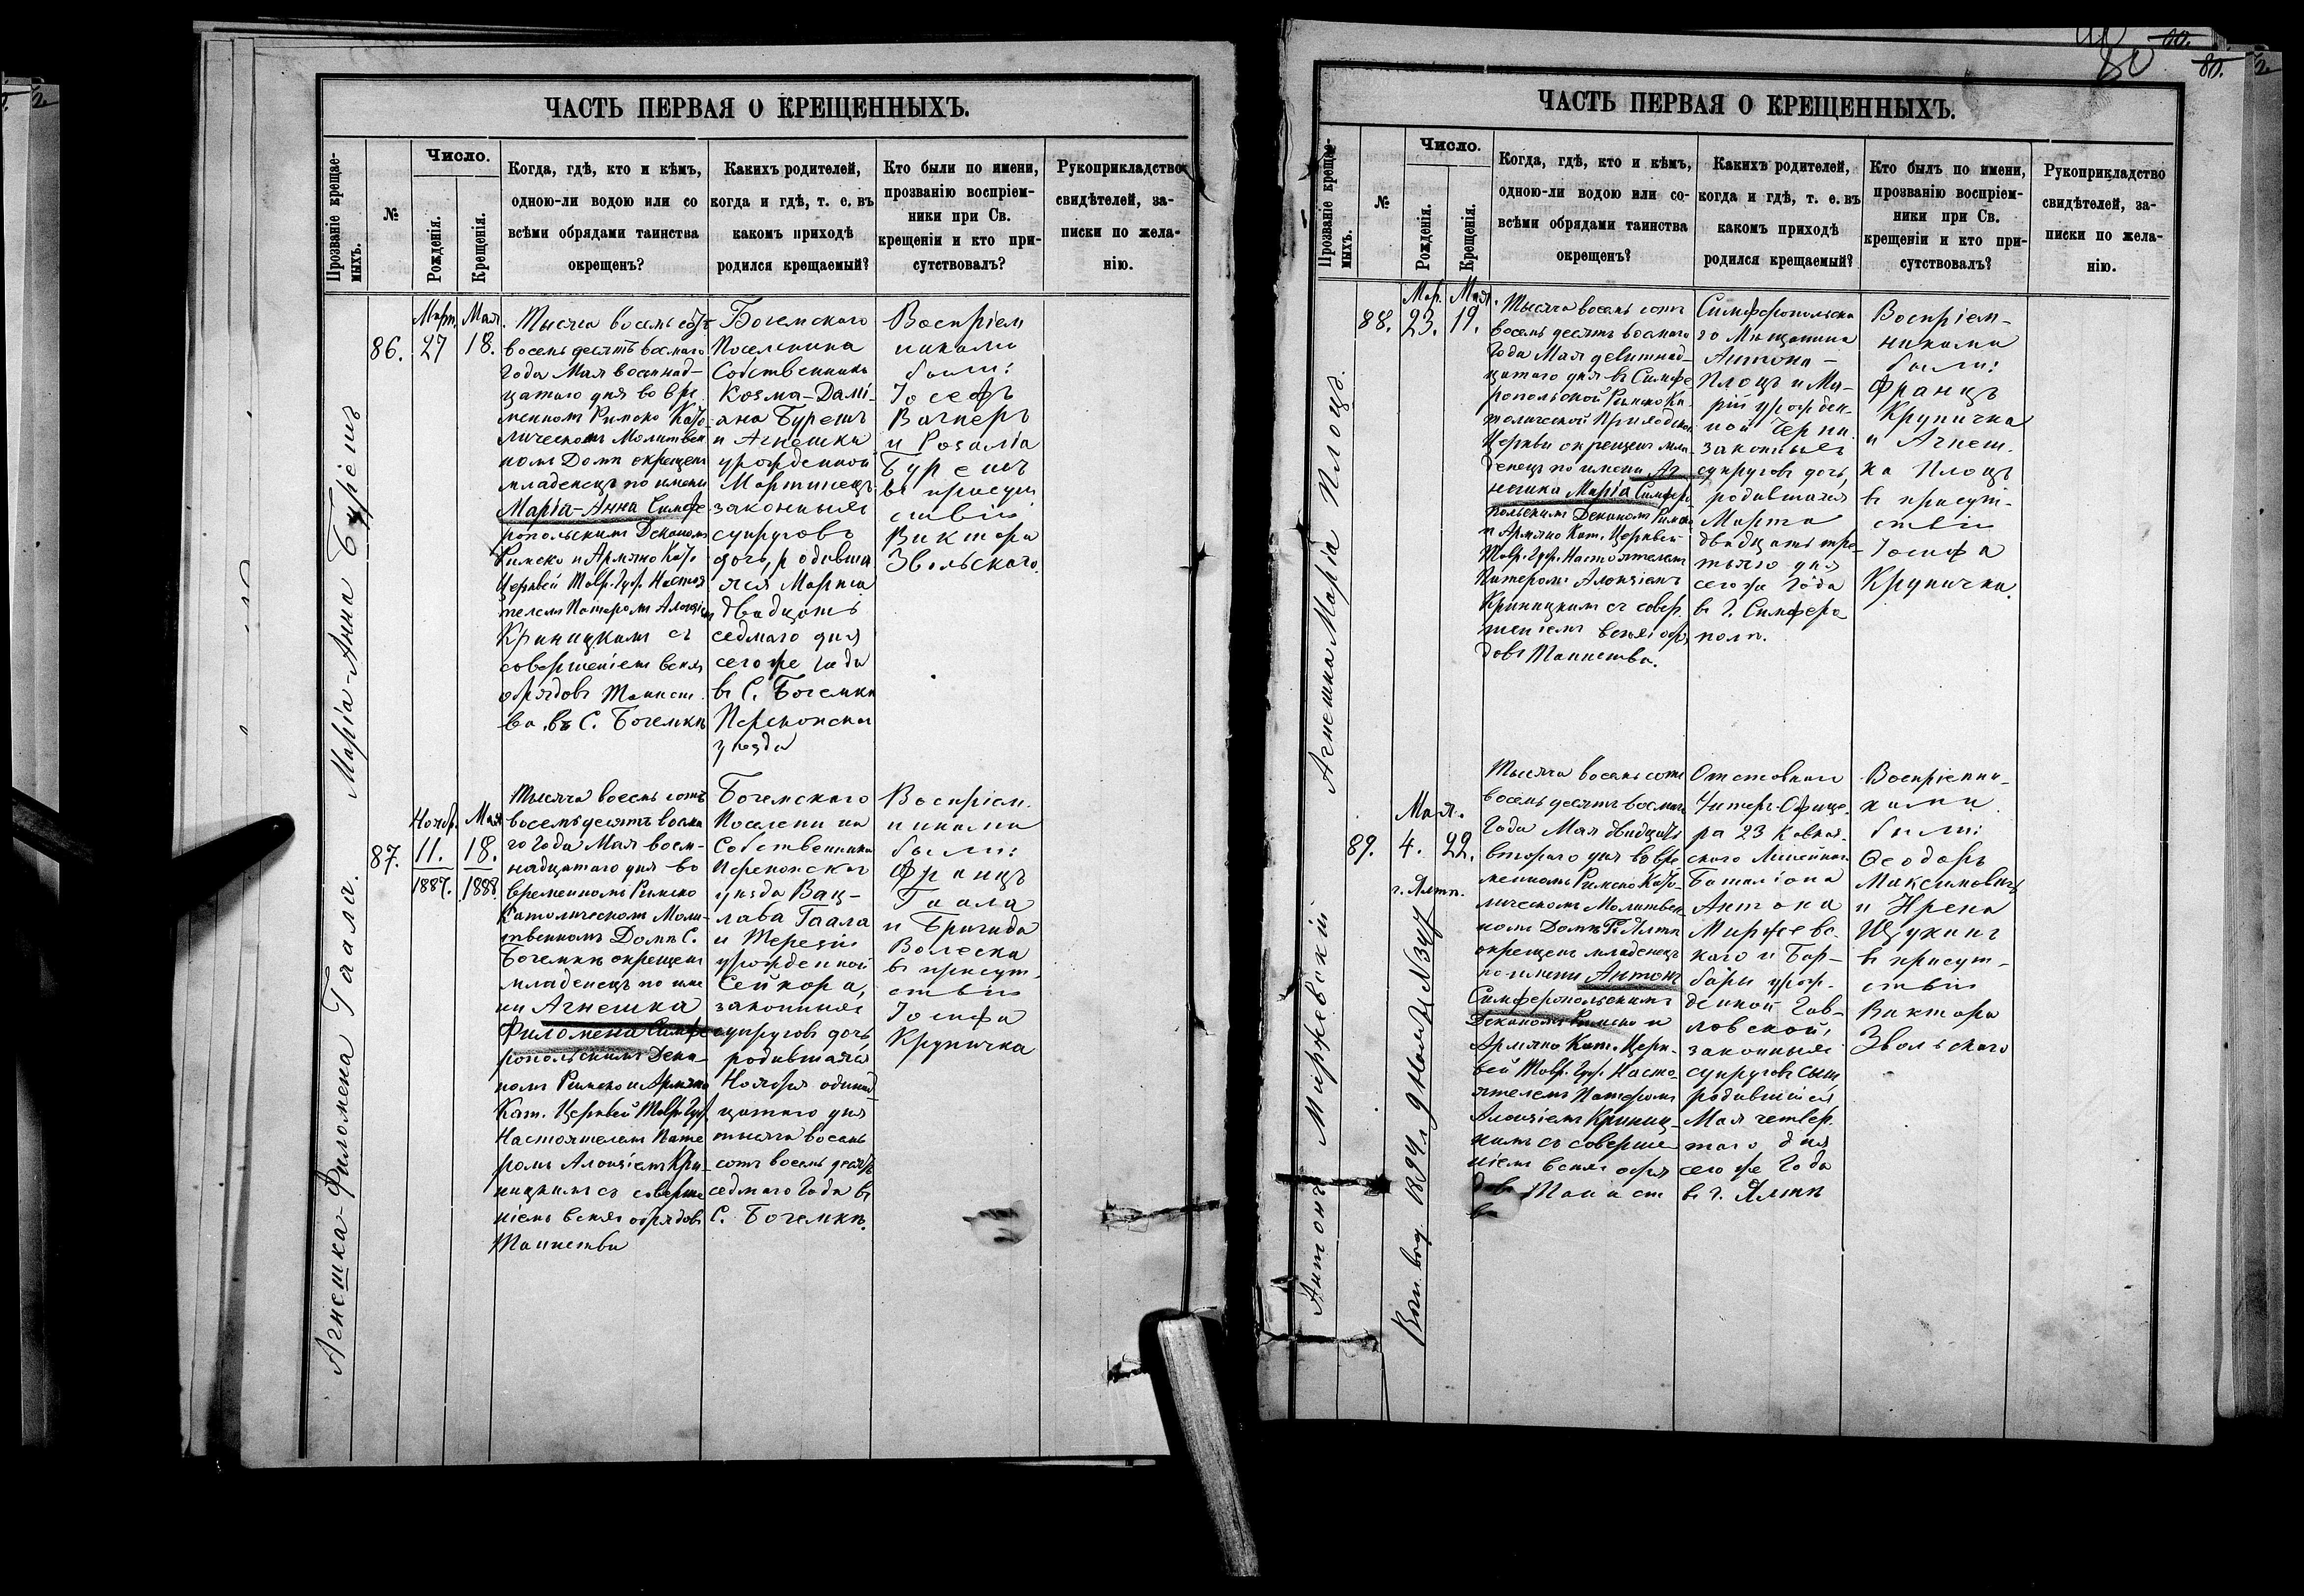 ЧАСТЬ ПЕРВАЯ О КРЕЩЕННЫХЪ.
Прозваніе крещае-
мыхъ.
№
Число.
Рожденія.
Крещенія.
Когда, гдѣ, кто и кѣмъ,
одною-ли водою или со
всѣми обрядами таинства
окрещенъ?
Какихъ родителей,
когда и гдѣ, т. е. въ
какомъ приходѣ
родился крещаемый?
Кто были по имени,
прозванію воспріем-
ники при Св.
крещеніи и кто при-
сутствовалъ?
Рукоприкладство
свидѣтелей, за-
писки по жела-
нію.
Марія-Анна Буріешъ
86.
Март.
27
Мая.
18.
Тысяча восемьсотъ
восемьдесятъ восмаго
Года Мая восемнад-
цатаго дня во вре
менномъ Римско Като
лическомъ Молитвен
номъ Домѣ окрещенъ
младенецъ по имени
Марія-Анна Симфе
ропольскимъ Деканомъ
Римско и Армяно Като.
Церквей Тавр. Губ. Настоя
телемъ Патеромъ Алоизіем
Криницкимъ съ
совершеніемъ всехъ
обрядовъ Таинст.
ва въ С. Богемкѣ
Богемского
Поселянина
Собственника
Козма-Дамі-
ана Бурешъ
и Агнешки
урожденной
Мартинецъ
законныхъ
супруговъ
дочь, родивша
яся Марта
двадцать
седмаго дня
сего же года
въ С. Богемкѣ
Перекопскаг
уѣзда
Воспріем
никами
были:
Іосефъ
Вагнеръ
и Розалія
Бурешъ
въ присут
ствіи
Виктора
Звольскаго.
Агнешка-Филомена Гаала.
87.
Ноябр.
11.
1887.
Мая
18.
1888
Тысяча восемь сотъ
восемьдесятъ восма
го Года Мая восем-
надцатаго дня во
временномъ Римско
Католическомъ Моли-
твенномъ Домѣ С.
Богемкѣ окрещенъ
младенецъ по име
ни Агнешка
Филомена Симфе
ропольскимъ Дека-
номъ Римско и Армяно
Кат. Церквей Тавр. Губ.
Настоятелемъ Пате
ромъ Алоизіемъ Кри-
ницкимъ съ соверше
ніемъ всехъ обрядовъ
Таинства
Богемского
Поселенина
Собственника
Перекопскаг
уѣзда Вац-
лава Гаала
и Терезіи
урожденной
Сейкора,
законныхъ
супруговъ дочь
родившаяся
Ноября одинад
цатаго дня
тысяча восемь
сотъ восемь десятъ
седмаго Года въ
С. Богемкѣ.
Воспріем.
никами
были:
Францъ
Гаала
и Бригида
Волеска
въ присут-
ствіи
Іосифа
Крупичка
80
80.
ЧАСТЬ ПЕРВАЯ О КРЕЩЕННЫХЪ.
Прозваніе крещае-
мыхъ.
№
Число.
Рожденія.
Крещенія.
Когда, гдѣ, кто и кѣмъ,
одною-ли водою или со-
всѣми обрядами таинства
окрещенъ?
Какихъ родителей,
когда и гдѣ, т. е. въ
какомъ приходѣ
родился крещаемый?
Кто былъ по имени,
прозванію воспріем-
ники при Св.
крещеніи и кто при-
сутствовалъ?
Рукоприкладство
свидѣтелей, за-
писки по жела-
нію.
Агнешка Марія Плоцъ.
88.
Мар.
23.
Мая.
19.
Тысяча восемь сотъ
восемь десятъ восмаго
Года Мая девятнад-
цатаго дня въ Симфе
ропольской Римско Ка
толической Приходской
Церкви окрещенъ мла
денецъ по имени Аг
нешка Марія Симферо
польскимъ Деканомъ Римско
и Армяно Кат. Церквей
Тавр. Губ. Настоятелемъ
Патеромъ Алоизіемъ
Криницкимъ съ совер
шеніемъ всехъ обр.
довъ Таинства.
Симферопольска
го Мещанина
Антона
Плоцъ и Ма-
ріи урожден-
ной Черни
законныхъ
супруговъ дочь,
родившаяся
Марта
двадцать тре-
тьяго дня
сего же Года
въ Г. Симферо
полѣ.
Воспріем-
никами
были:
Францъ
Крупичка
и Агнеш.
ка Плоцъ
въ присут-
ствіи
Іосифа
Крупичка.
Антонъ Миржевскій
89.
Мая.
4.
22.
г. Ялтѣ.
Вып. выд. 1894 г. 9 Ноября № 347
Тысяча восемь сотъ
восемь десятъ восмаго
Года Мая двадцать
втораго дня во вре
менномъ Римско Като-
лическомъ Молитвен
номъ Домѣ Г. Ялтѣ
окрещенъ младенецъ
по имени Антонъ
Симферопольскимъ
Деканомъ Римско и
Армяно Кат. Церк-
вей Тавр. Губ. Насто-
ятелемъ Патеромъ
Алоизіемъ Криниц-
кимъ съ соверше
ніемъ всехъ обря
довъ Таинст
ва
Отставнаго
Унтеръ-Офице-
ра 23 Кавказ-
скаго Линейнаго
Баталіона
Антона
Миржевс-
каго и Бар-
бары урож-
денной Гав-
ловской,
законныхъ
супруговъ сынъ
родившійся
Мая четвер.
таго дня
сего же Года
въ г. Ялтѣ
Воспріемни-
ками
были:
Ѳеодоръ
Максимовичъ
и Ирена
Щукинъ
въ присут-
ствіи
Виктора
Звольскаго